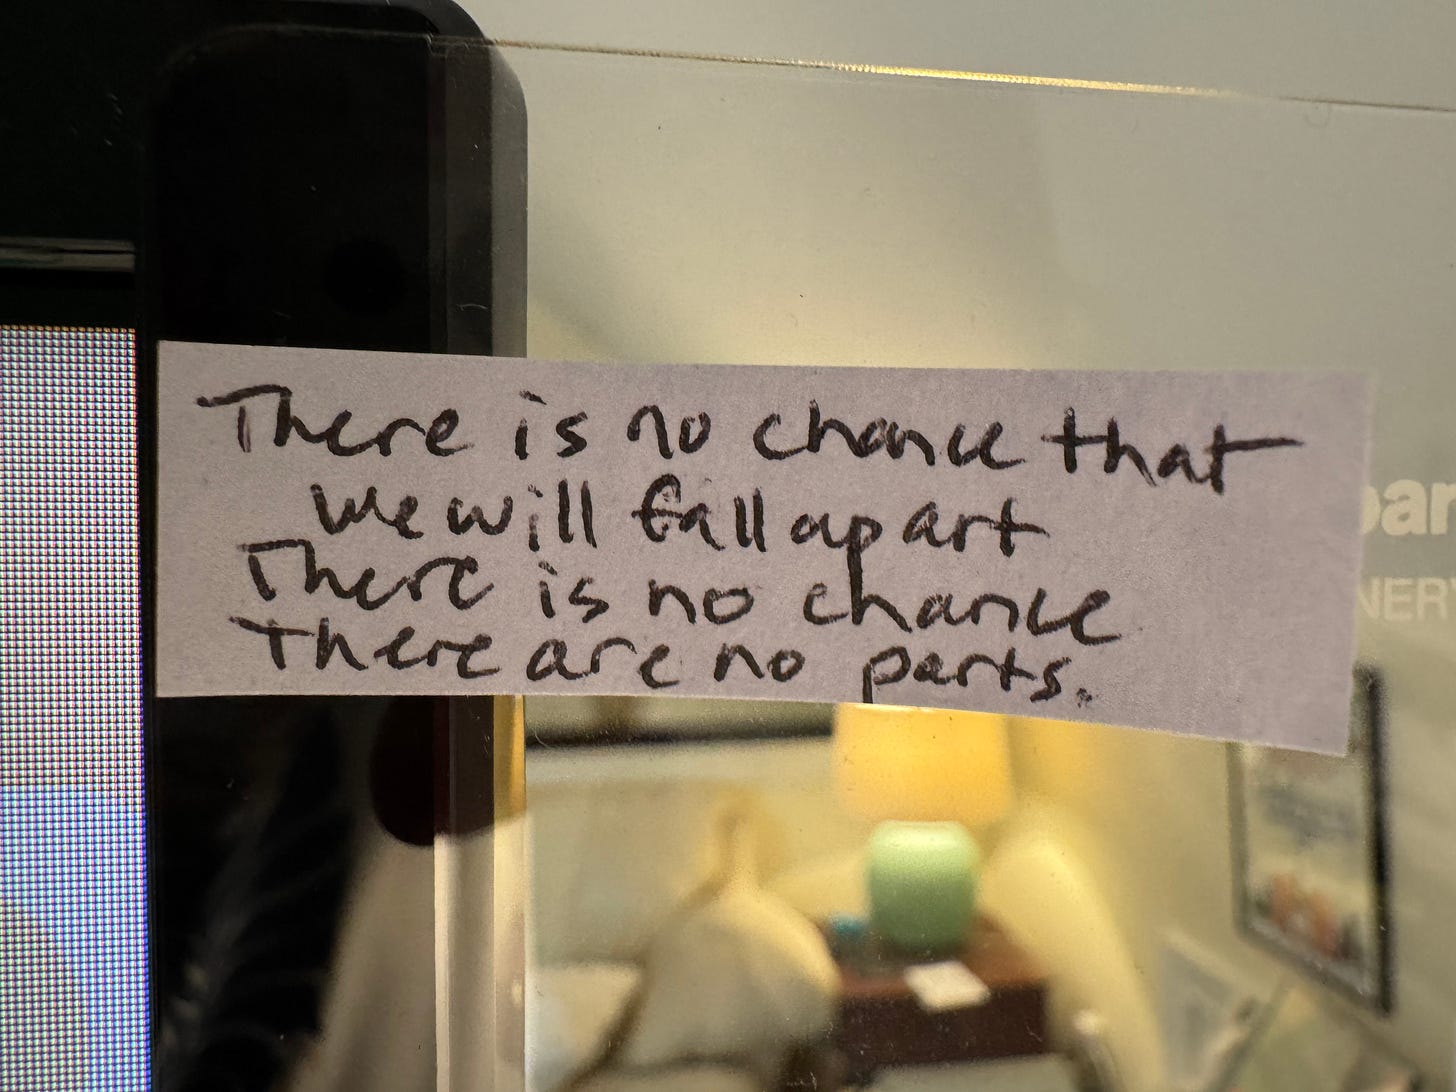 There is no chance that
we will fall apart
There is no chance
There are no parts.